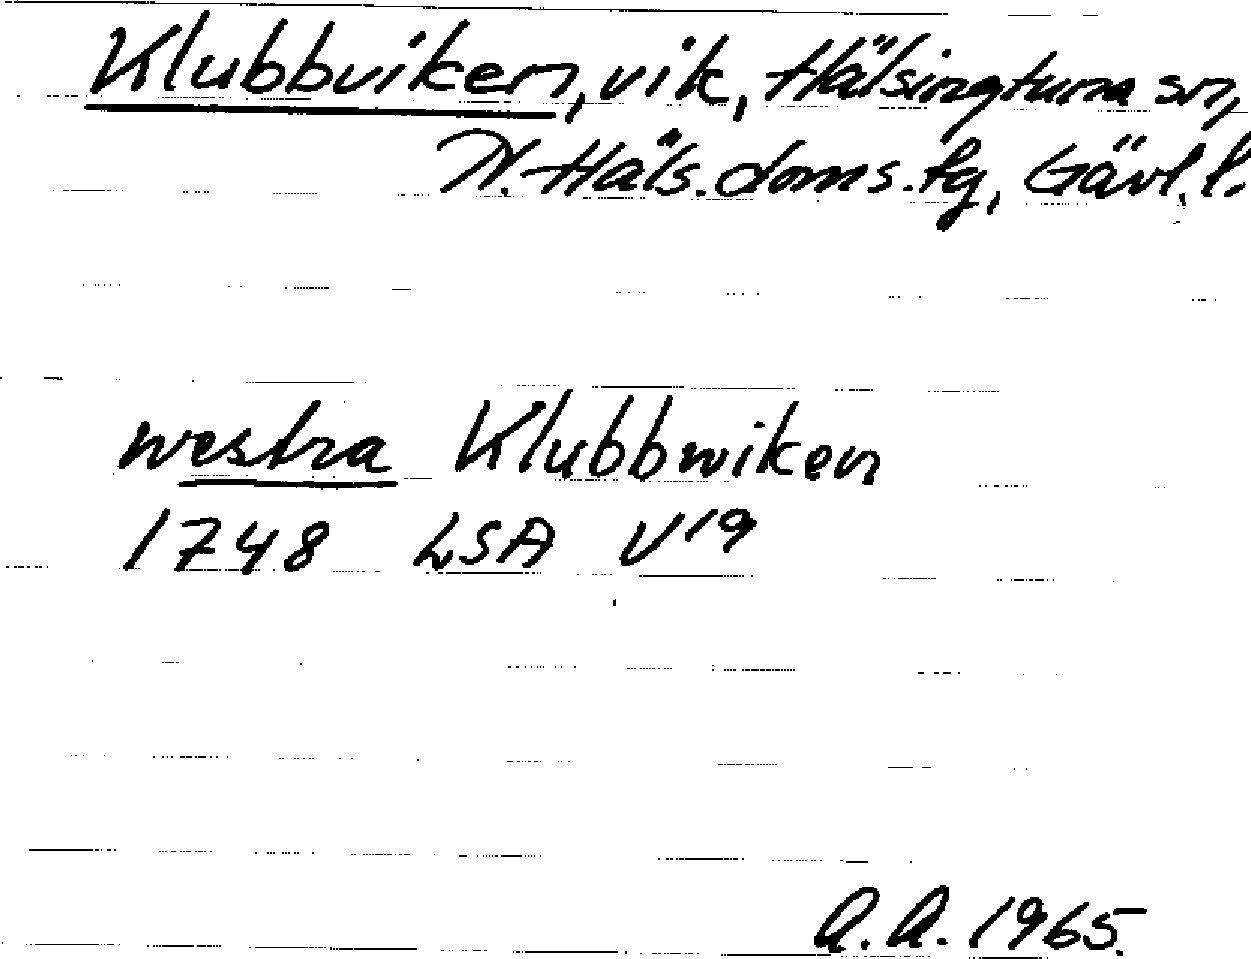 Klubbviken, vik, Hälsingtuna sn,
N. Häls. doms. tg, Gävl. l.
westra Klubbwiken
1748 LSA V 19
A.A. 1965.